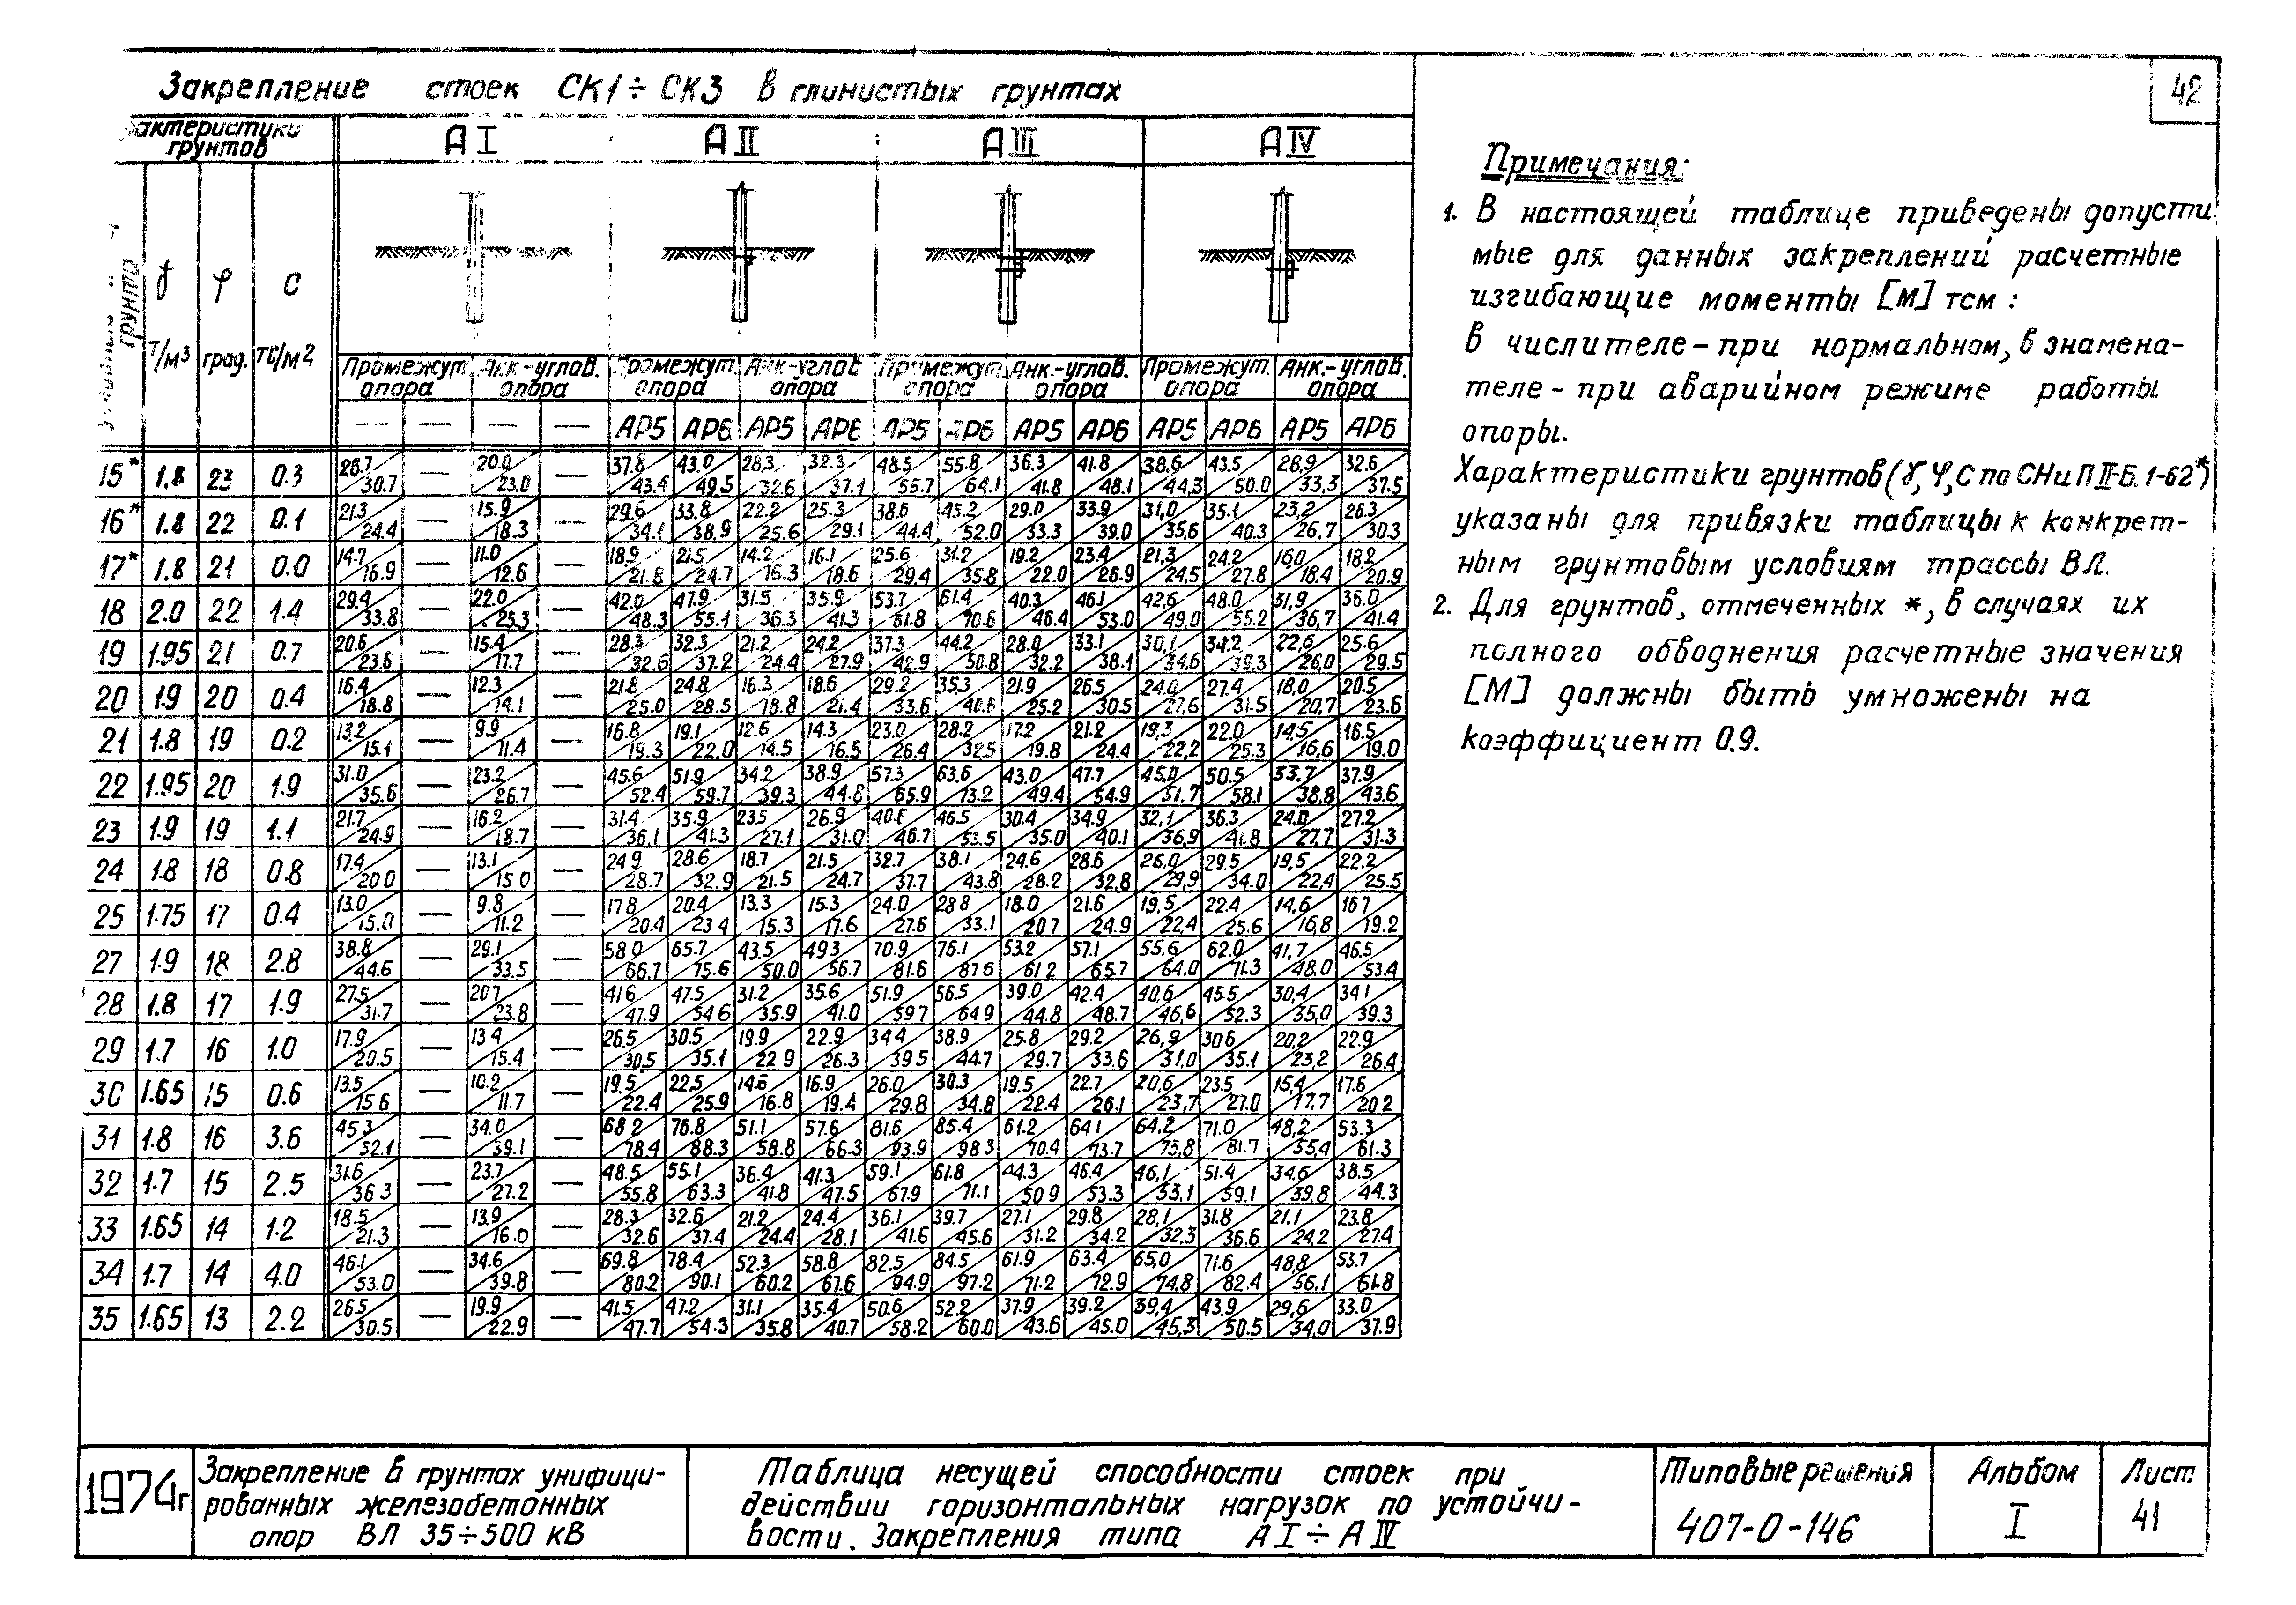 42
Закрепление стоек СК1÷СК3 в глинистых грунтах
грунтов
АI АII АIII АIV
грунта γ φ С
Т/м3 град. тс/м2
Промежут. опора Анк.-углов. опора Промежут. опора Анк-углов опора Промежут. опора Анк.-углов. опора Промежут. опора Анк.-углов. опора
— — — — АР5 АР6 АР5 АР6 АР5 АР6 АР5 АР6 АР5 АР6 АР5 АР6
15* 1.8 23 0.3 26.7/30.7 — 20.0/23.0 — 37.8/43.4 43.0/49.5 28.3/32.6 32.3/37.1 48.5/55.7 55.8/64.1 36.3/41.8 41.8/48.1 38,6/44,3 43.5/50.0 28,9/33,3 32.6/37.5
16* 1.8 22 0.1 21.3/24.4 — 15.9/18.3 — 29.6/34.1 33.8/38.9 22.2/25.6 25.3/29.1 38.6/44.4 45.2/52.0 29.0/33.3 33.9/39.0 31,0/35,6 35.1/40.3 23,2/26,7 26.3/30.3
17* 1.8 21 0.0 14.7/16.9 — 11.0/12.6 — 18.9/21.8 21.5/24.7 14.2/16.3 16.1/18.6 25.6/29.4 31.2/35.8 19.2/22.0 23.4/26.9 21,3/24,5 24.2/27.8 16.0/18.4 18.2/20.9
18 2.0 22 1.4 29.4/33.8 — 22.0/25.3 — 42.0/48.3 47.9/55.1 31.5/36.3 35.9/41.3 53.7/61.8 61.4/70.6 40.3/46.4 46.1/53.0 42,6/49,0 48.0/55.2 31,9/36,7 36.0/41.4
19 1.95 21 0.7 20.6/23.6 — 15.4/17.7 — 28.3/32.6 32.3/37.2 21.2/24.4 24.2/27.9 37.3/42.9 44.2/50.8 28.0/32.2 33.1/38.1 30,1/34,6 34.2/39.3 22,6/26,0 25.6/29.5
20 1.9 20 0.4 16.4/18.8 — 12.3/14.1 — 21.8/25.0 24.8/28.5 16.3/18.8 18.6/21.4 29.2/33.6 35.3/40.6 21.9/25.2 26.5/30.5 24,0/27,6 27.4/31.5 18,0/20,7 20.5/23.6
21 1.8 19 0.2 13.2/15.1 — 9.9/11.4 — 16.8/19.3 19.1/22.0 12.6/14.5 14.3/16.5 23.0/26.4 28.2/32.5 17.2/19.8 21.2/24.4 19,3/22,2 22.0/25.3 14,5/16,6 16.5/19.0
22 1.95 20 1.9 31.0/35.6 — 23.2/26.7 — 45.6/52.4 51.9/59.7 34.2/39.3 38.9/44.8 57.3/65.9 63.6/73.2 43.0/49.4 47.7/54.9 45,0/51,7 50.5/58.1 33.7/38,8 37.9/43.6
23 1.9 19 1.1 21.7/24.9 — 16.2/18.7 — 31.4/36.1 35.9/41.3 23.5/27.1 26.9/31.0 40.6/46.7 46.5/53.5 30.4/35.0 34.9/40.1 32,1/36,9 36.3/41.8 24,0/27,7 27.2/31.3
24 1.8 18 0.8 17.4/20 0 — 13.1/15 0 — 24 9/28.7 28.6/32.9 18.7/21.5 21.5/24.7 32.7/37.7 38.1/43.8 24.6/28.2 28.6/32.8 26,0/29,9 29.5/34.0 19,5/22,4 22.2/25.5
25 1.75 17 0.4 13.0/15.0 — 9.8/11.2 — 17 8/20.4 20.4/23 4 13.3/15.3 15.3/17.6 24.0/27.6 28 8/33.1 18.0/20 7 21.6/24.9 19,5/22,4 22.4/25.6 14,6/16,8 16 7/19.2
27 1.9 18 2.8 38.8/44.6 — 29.1/33.5 — 58 0/66.7 65.7/75.6 43.5/50.0 49 3/56.7 70.9/81.6 76.1/87 6 53.2/61 2 57.1/65.7 55,6/64,0 62.0/71.3 41,7/48.0 46.5/53.4
28 1.8 17 1.9 27.5/31.7 — 20 7/23.8 — 41 6/47.9 47.5/54 6 31.2/35.9 35.6/41.0 51.9/59 7 56.5/64 9 39.0/44.8 42.4/48.7 40,6/46,6 45.5/52.3 30,4/35,0 34 1/39.3
29 1.7 16 1.0 17.9/20.5 — 13 4/15.4 — 26.5/30.5 30.5/35.1 19.9/22 9 22.9/26.3 34 4/39 5 38.9/44.7 25.8/29.7 29.2/33.6 26,9/31,0 30 6/35.1 20,2/23,2 22.9/26.4
30 1.65 15 0.6 13.5/15 6 — 10.2/11.7 — 19.5/22.4 22.5/25.9 14.6/16.8 16.9/19.4 26.0/29.8 30.3/34.8 19.5/22.4 22.7/26.1 20,6/23,7 23.5/27.0 15,4/17,7 17.6/20 2
31 1.8 16 3.6 45 3/52.1 — 34.0/39.1 — 68 2/78.4 76.8/88.3 51.1/58.8 57.6/66.3 81.6/93.9 85.4/98 3 61.2/70.4 64 1/73.7 64,2/73,8 71.0/81.7 48,2/55,4 53.3/61.3
32 1.7 15 2.5 31.6/36 3 — 23.7/27.2 — 48.5/55.8 55.1/63.3 36.4/41.8 41.3/47.5 59.1/67.9 61.8/71.1 44.3/50 9 46.4/53.3 46,1/53,1 51.4/59.1 34,6/39,8 38.5/44.3
33 1.65 14 1.2 18.5/21.3 — 13.9/16.0 — 28.3/32.6 32.6/37.4 21.2/24.4 24.4/28.1 36.1/41.6 39.7/45.6 27.1/31.2 29.8/34.2 28,1/32,3 31.8/36.6 21,1/24,2 23.8/27.4
34 1.7 14 4.0 46.1/53.0 — 34.6/39.8 — 69.8/80.2 78.4/90.1 52.3/60.2 58.8/67.6 82.5/94.9 84.5/97.2 61.9/71.2 63.4/72.9 65,0/74,8 71.6/82.4 48,8/56.1 53.7/61.8
35 1.65 13 2.2 26.5/30.5 — 19.9/22.9 — 41.5/47.7 47.2/54.3 31.1/35.8 35.4/40.7 50.6/58.2 52.2/60.0 37.9/43.6 39.2/45.0 39,4/45,3 43.9/50.5 29,6/34,0 33.0/37.9
Примечания:
1. В настоящей таблице приведены допусти
мые для данных закреплений расчетные
изгибающие моменты [М] тсм :
в числителе - при нормальном, в знамена-
теле - при аварийном режиме работы
опоры.
Характеристики грунтов (γ, φ, С по СНиП II-Б. 1-62*)
указаны для привязки таблицы к конкрет-
ным грунтовым условиям трассы ВЛ.
2. Для грунтов, отмеченных *, в случаях их
полного обводнения расчетные значения
[М] должны быть умножены на
коэффициент 0.9.
1974г
Закрепление в грунтах унифици-
рованных железобетонных
опор ВЛ 35÷500 кВ
Таблица несущей способности стоек при
действии горизонтальных нагрузок по устойчи-
вости. Закрепления типа АI÷АIV
Типовые решения
407-0-146
Альбом
I
Лист
41